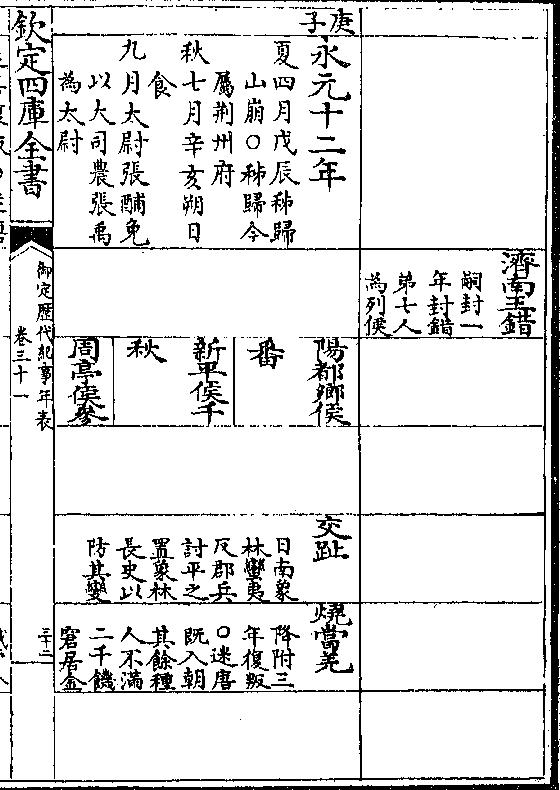 庚子
永元十二年
夏四月戊辰秭歸
山崩○秭歸今
屬荆州府
秋七月辛亥朔日
食
九月太尉張酺免
以大司農張禹
為太尉
濟南王錯
嗣封一
年封錯
弟七人
為列侯
陽都鄉侯
番
新平侯千
秋
周亭侯參
交趾
日南象
林蠻夷
反郡兵
討平之
置象林
長史以
防其變
燒當羌
降附三
年復叛
○迷唐
既入朝
其餘種
人不滿
二千饑
窘居金
欽定四庫全書
御定歷代紀事年表
卷三十一
三十二